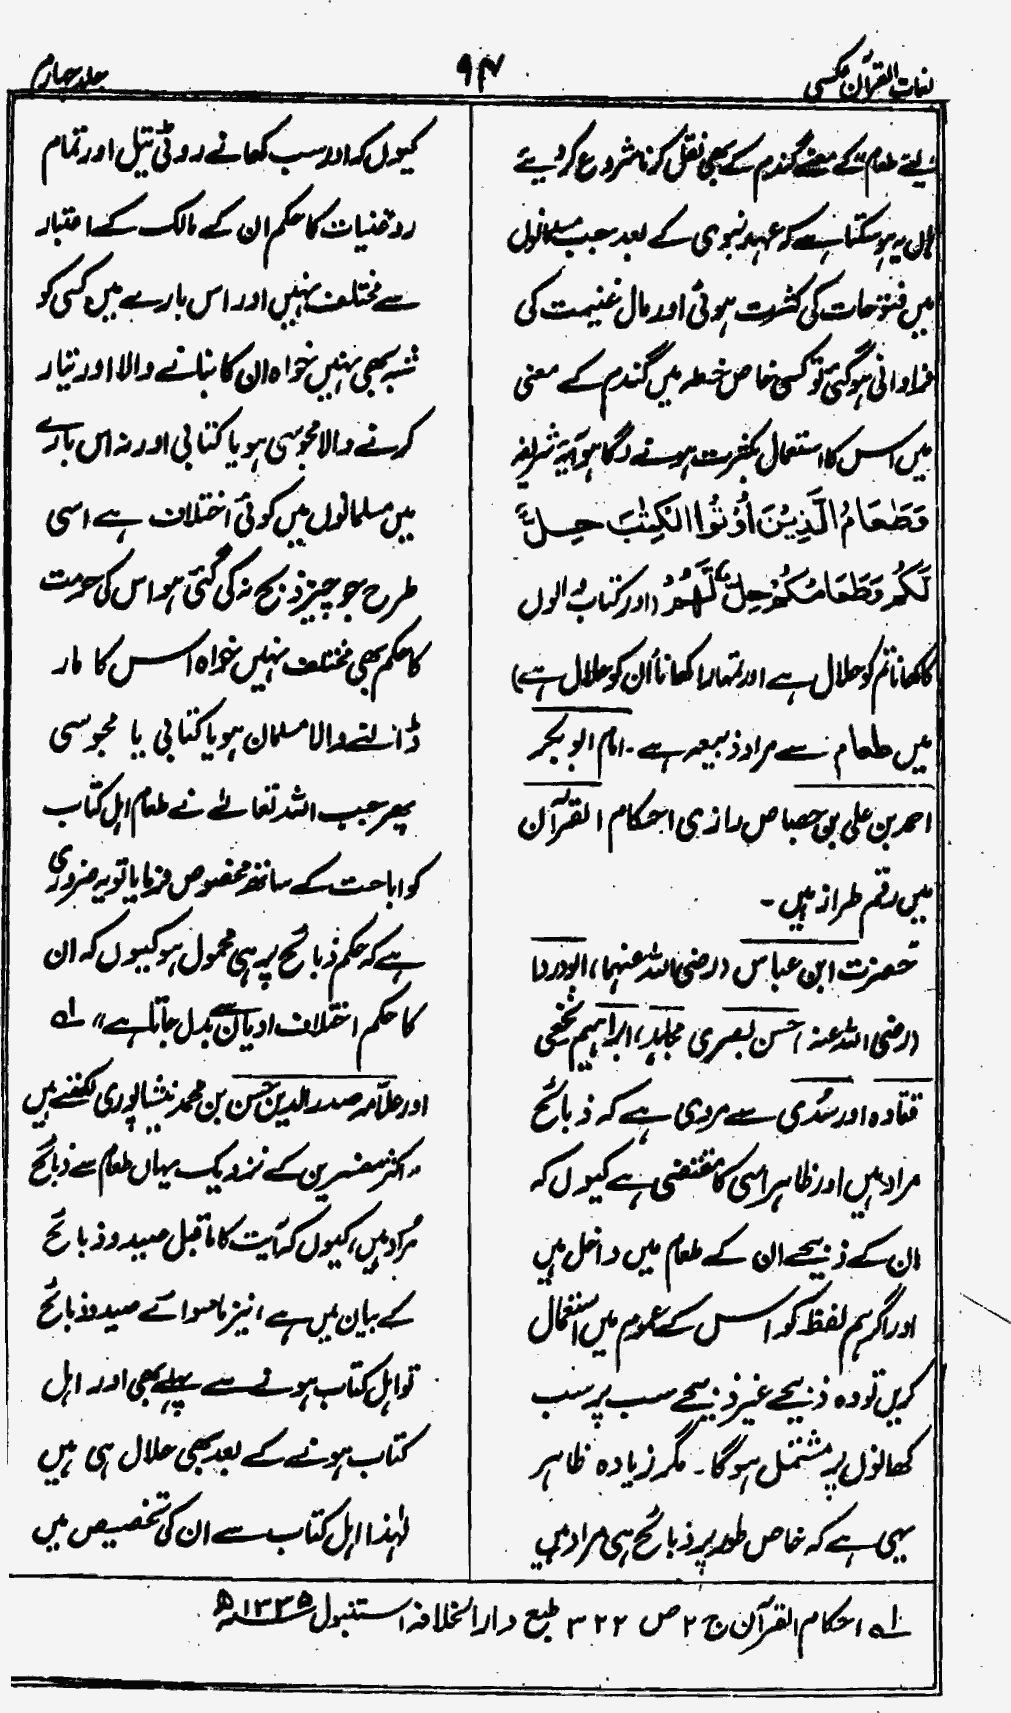 لغات القرآن عکسی
۹۴
جلد چہارم
لئے طعام کے معنے گندم کے بھی نقل کرنا شروع کر دیئے
ہاں یہ ہو سکتا ہے کہ عہد نبوی کے بعد جب مسلمانوں
میں فتوحات کی کثرت ہوئی اور مال غنیمت کی
فراوانی ہو گئی تو کسی خاص خطہ میں گندم کے معنی
میں اس کا استعمال بکثرت ہونے لگا ہو آیۃ شریفہ
وَطَعَامُ الَّذِیْنَ اُوْتُوا الْکِتٰبَ حِلٌّ
لَّکُمْ وَطَعَامُکُمْ حِلٌّ لَّهُمْ (اور کتاب والوں
کا کھانا تم کو حلال ہے اور تمہارا کھانا اُن کو حلال ہے)
میں طعام سے مراد ذبیحہ ہے۔ امام ابو بکر
احمد بن علی بن جصاص رازی احکام القرآن
میں رقم طراز ہیں۔
حضرت ابن عباس (رضی اللہ عنہما)، ابو دردا
(رضی اللہ عنہ) حسن بصری مجاہد، ابراہیم نخعی
قتادہ اور سُدی سے مروی ہے کہ ذبائح
مراد ہیں اور ظاہر اسی کا مقتضی ہے کیوں کہ
ان کے ذبیحے ان کے طعام میں داخل ہیں
اور اگر ہم لفظ کو اس کے عموم میں استعمال
کریں تو وہ ذبیحے غیر ذبیحے سب پر سب
کھانوں پر مشتمل ہو گا۔ مگر زیادہ ظاہر
یہی ہے کہ خاص طور پر ذبائح ہی مراد ہیں
کیوں کہ اور سب کھانے روٹی تیل اور تمام
روغنیات کا حکم ان کے مالک کے اعتبار
سے مختلف نہیں اور اس بارے میں کسی کو
شبہ بھی نہیں خواہ ان کا بنانے والا اور تیار
کرنے والا مجوسی ہو یا کتابی اور نہ اس بارے
میں مسلمانوں میں کوئی اختلاف ہے اسی
طرح جو چیز ذبح نہ کی گئی ہو اس کی حرمت
کا حکم بھی مختلف نہیں خواہ اس کا مار
ڈالنے والا مسلمان ہو یا کتابی یا مجوسی
پھر جب اللہ تعالےٰ نے طعام اہل کتاب
کو اباحت کے ساتھ مخصوص فرمایا تو یہ ضروری
ہے کہ حکم ذبائح پر ہی محمول ہو کیوں کہ ان
کا حکم اختلاف ادیان سے بدل جاتا ہے" لہ
اور علّامہ صدر الدین حسن بن محمد نیشاپوری لکھتے ہیں
"اکثر مفسرین کے نزدیک یہاں طعام سے ذبائح
مُراد ہیں، کیوں کہ آیت کا ماقبل صید و ذبائح
کے بیان میں ہے، نیز ماسوائے صید و ذبائح
تو اہل کتاب ہونے سے پہلے بھی اور اہل
کتاب ہونے کے بعد بھی حلال ہی ہیں
لہٰذا اہل کتاب سے ان کی تخصیص میں
لہ احکام القرآن ج ۲ ص ۳۲۲ طبع دار الخلافہ استنبول ۱۳۳۵ھ